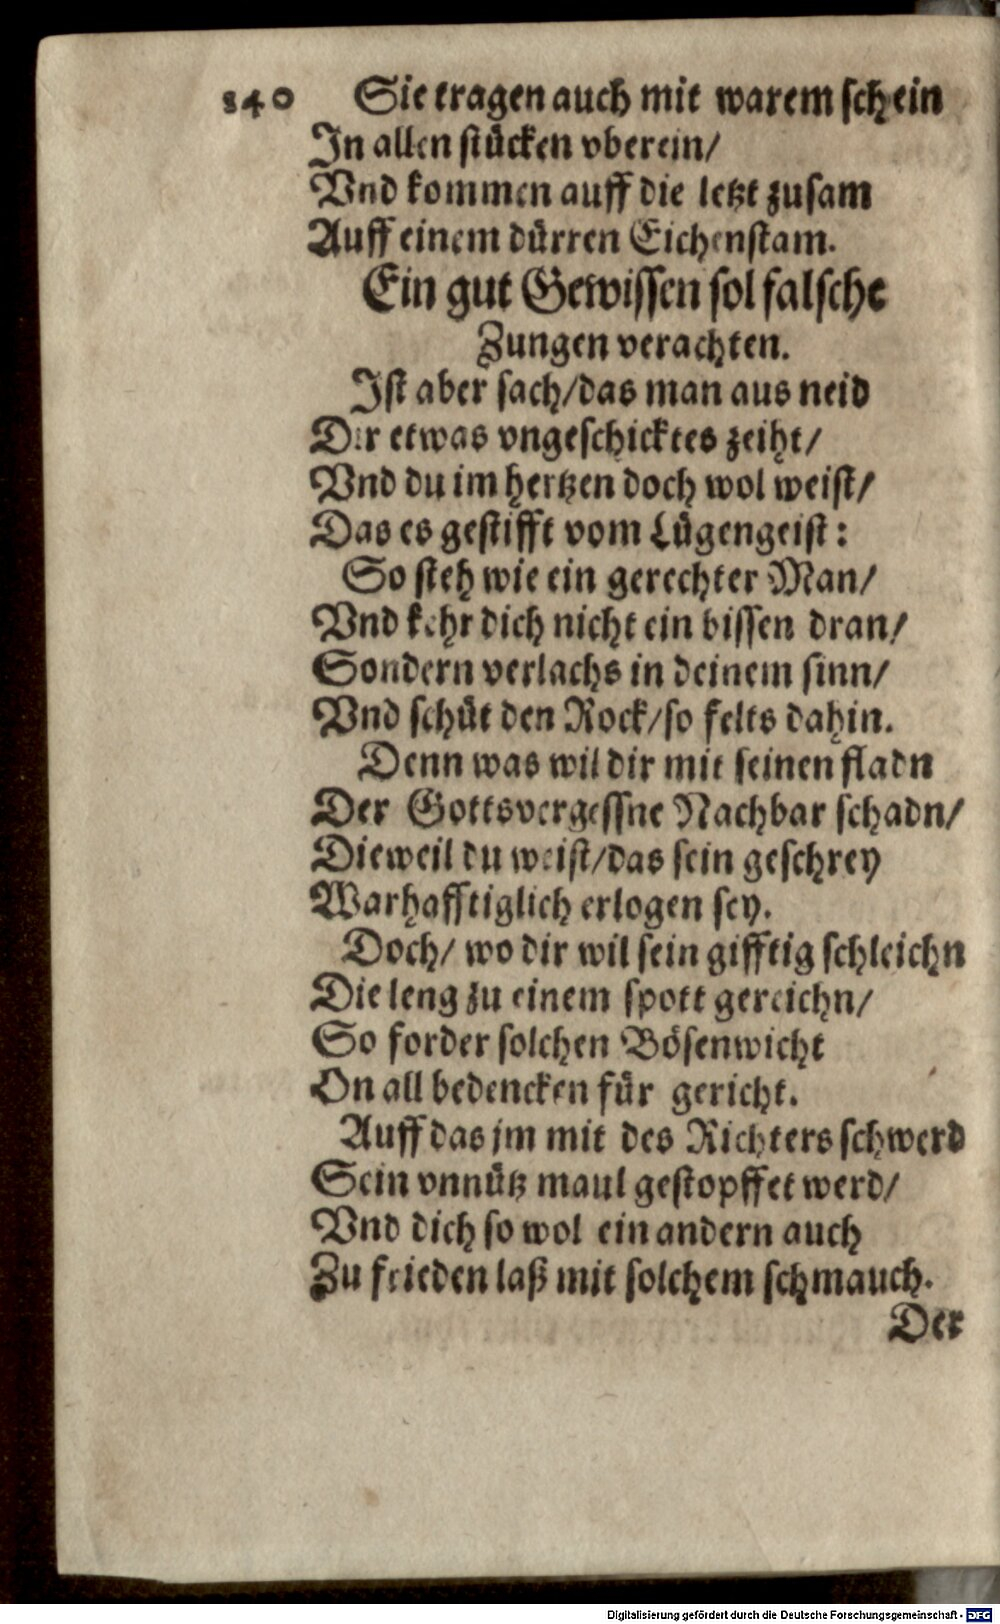 840 Sie tragen auch mit warem schein
In allen stücken vberein/
Vnd kommen auff die letzt zusam
Auff einem dürren Eichenstam.
Ein gut Gewissen sol falsche
Zungen verachten.
Ist aber sach/das man aus neid
Dir etwas vngeschicktes zeiht/
Vnd du im hertzen doch wol weist/
Das es gestifft vom Lügengeist:
So steh wie ein gerechter Man/
Vnd kehr dich nicht ein bissen dran/
Sondern verlachs in deinem sinn/
Vnd schüt den Rock/so felts dahin.
Denn was wil dir mit seinen fladn
Der Gottsvergessne Nachbar schadn/
Dieweil du weist/das sein geschrey
Warhafftiglich erlogen sey.
Doch/ wo dir wil sein gifftig schleichn
Die leng zu einem spott gereichn/
So forder solchen Bösenwicht
On all bedencken für gericht.
Auff das jm mit des Richters schwerd
Sein vnnütz maul gestopffet werd/
Vnd dich so wol ein andern auch
Zu frieden laß mit solchem schmauch.
Der
Digitalisierung gefördert durch die Deutsche Forschungsgemeinschaft - DFG